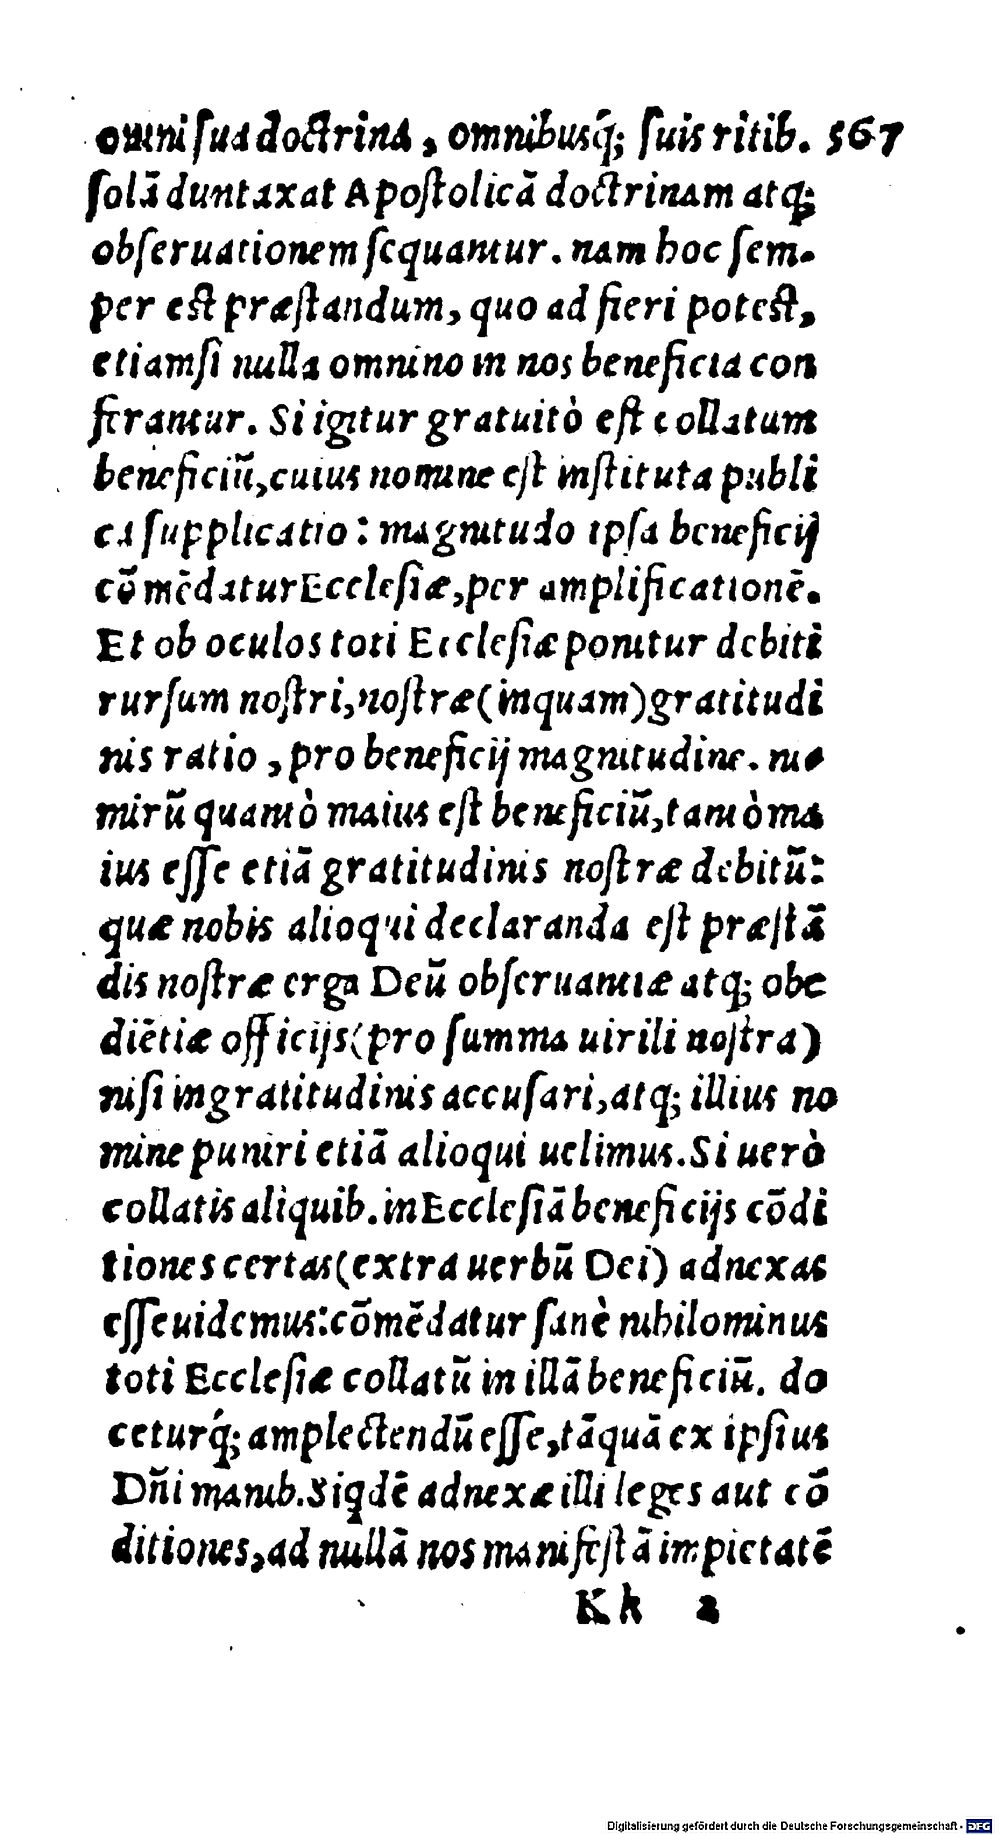 omni ſua doctrina, omnibusq́; ſuis ritib. 567
ſolā duntaxat Apoſtolicā doctrinam atq;
obſeruationem ſequantur. nam hoc ſem-
per eſt præſtandum, quo ad fieri poteſt,
etiamſi nulla omnino in nos beneficia con
ferantur. Si igitur gratuitò eſt collatum
beneficiū, cuius nomine eſt inſtituta publi
ca ſupplicatio: magnitudo ipſa beneficij
cōmēdatur Eccleſiæ, per amplificationē.
Et ob oculos toti Eccleſiæ ponitur debiti
rurſum noſtri, noſtræ (inquam) gratitudi
nis ratio, pro beneficij magnitudine. ni-
mirū quantò maius eſt beneficiū, tantò ma
ius eſſe etiā gratitudinis noſtræ debitū:
quæ nobis alioqui declaranda eſt præſtā
dis noſtræ erga Deū obſeruantiæ atq; obe
diētiæ officijs (pro ſumma uirili noſtra)
niſi ingratitudinis accuſari, atq; illius no
mine puniri etiā alioqui uelimus. Si uerò
collatis aliquib. in Eccleſiā beneficijs cōdi
tiones certas (extra uerbū Dei) adnexas
eſſe uidemus: cōmēdatur ſanè nihilominus
toti Eccleſiæ collatū in illā beneficiū. do
ceturq́; amplectendū eſſe, tāquā ex ipſius
Dñi manib. Siqdē adnexæ illi leges aut cō
ditiones, ad nullā nos manifeſtā impietatē
Kk 2
Digitalisierung gefördert durch die Deutsche Forschungsgemeinschaft - DFG